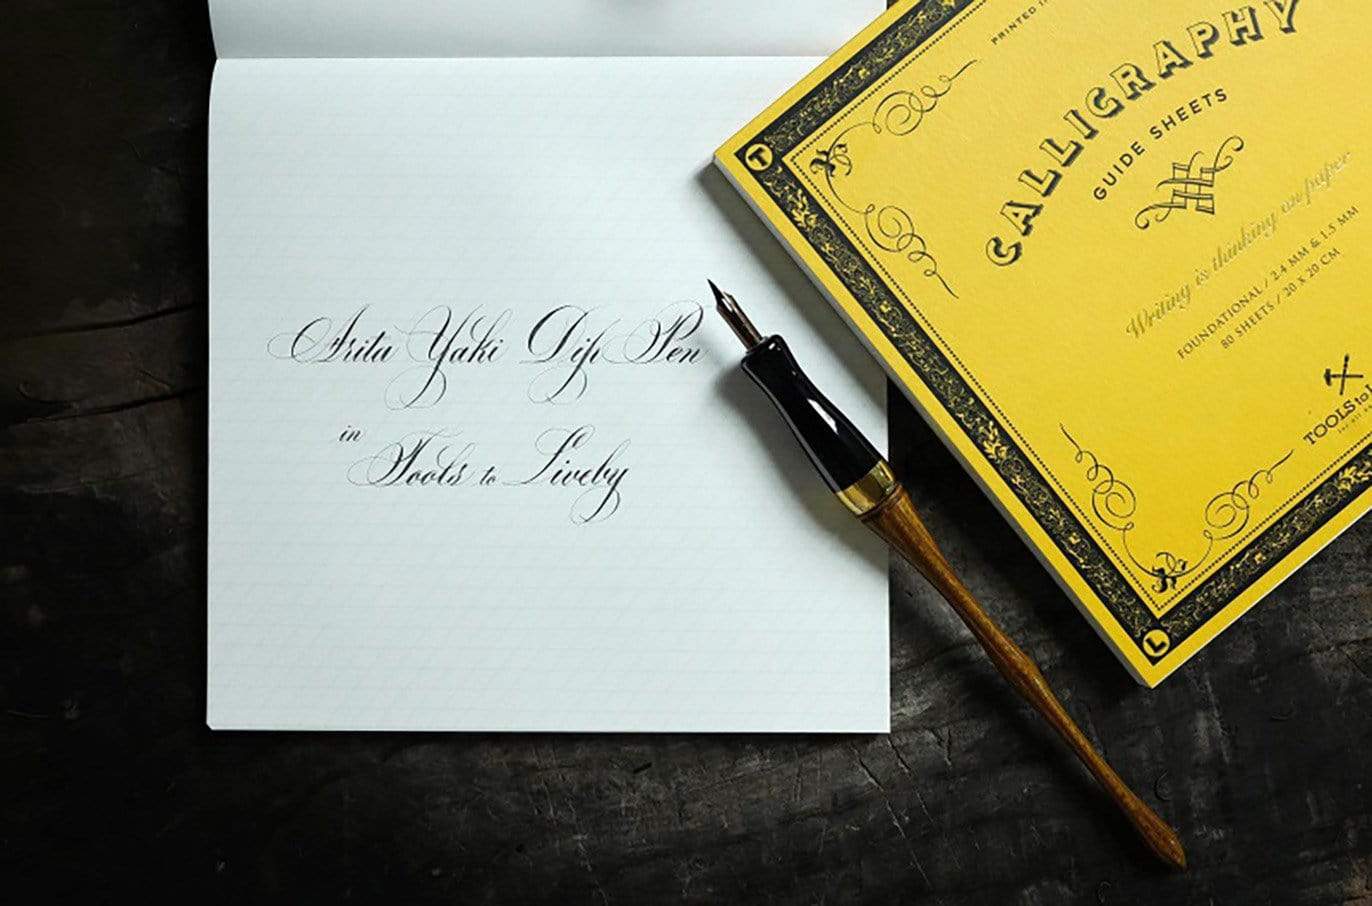 Arita Yaki Dip Pen
in
Tools to Liveby
PRINTED
CALLIGRAPHY
GUIDE SHEETS
Writing is thinking on paper
FOUNDATIONAL / 2.4 MM & 1.5 MM
80 SHEETS / 20 X 20 CM
TOOLS to
T
L